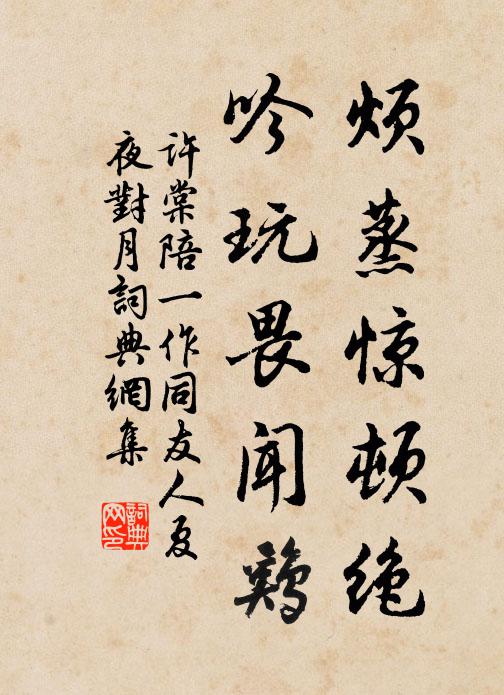 烦蒸惊顿绝
吟玩畏闻鸡
许棠陪一作同友人夏
夜對月詞典網集
詞典
网印